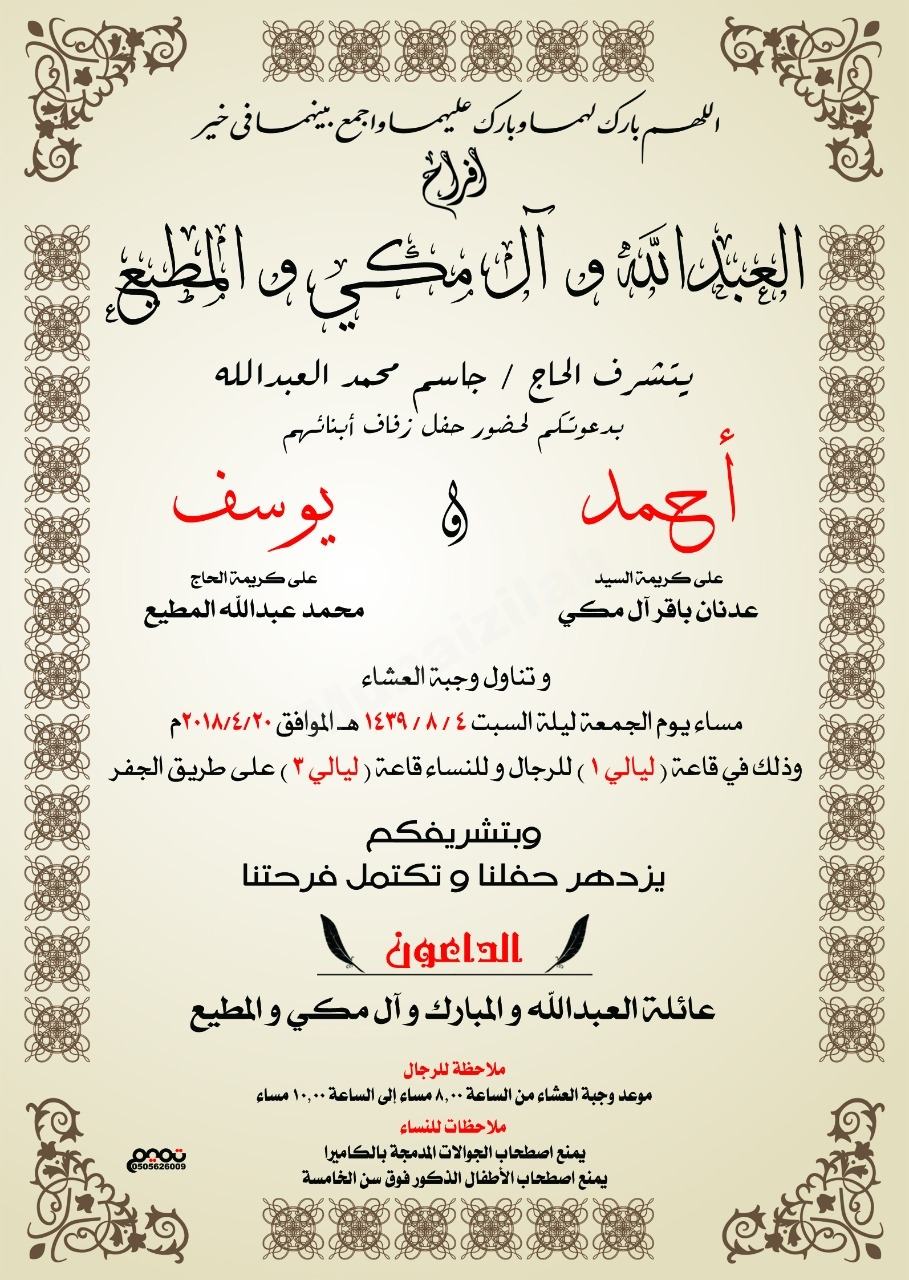 اللهم بارك لهما وبارك عليهما واجمع بينهما في خير
أفراح
العبدالله و آل مكي و المطيع
يتشرف الحاج / جاسم محمد العبدالله
بدعوتكم لحضور حفل زفاف أبنائهم
أحمد و يوسف
على كريمة السيد
عدنان باقر آل مكي
على كريمة الحاج
محمد عبدالله المطيع
و تناول وجبة العشاء
مساء يوم الجمعة ليلة السبت ٤ / ٨ / ١٤٣٩ هـ الموافق ٢٠١٨/٤/٢٠م
وذلك في قاعة ( ليالي ١ ) للرجال و للنساء قاعة ( ليالي ٣ ) على طريق الجفر
وبتشريفكم
يزدهر حفلنا و تكتمل فرحتنا
الداعون
عائلة العبدالله و المبارك و آل مكي و المطيع
ملاحظة للرجال
موعد وجبة العشاء من الساعة ٨,٠٠ مساء إلى الساعة ١٠,٠٠ مساء
ملاحظات للنساء
يمنع اصطحاب الجوالات المدمجة بالكاميرا
يمنع اصطحاب الأطفال الذكور فوق سن الخامسة
0505626009